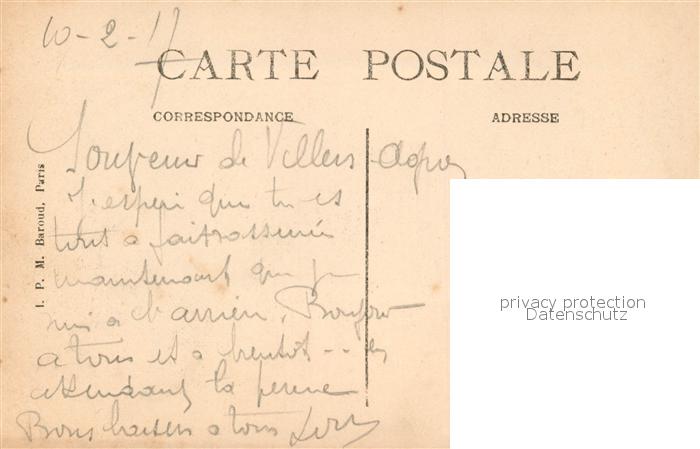 10-2-17
CARTE POSTALE
CORRESPONDANCE
ADRESSE
Souvenir de Villers
J'espère que tu es
tout a fait rassurée
maintenant que je
suis a l'arrière. Bonjour
a tous et a bientot -- en
attendant la perme
Bons baisers a tous
I. P. M. Baroud, Paris
privacy protection
Datenschutz